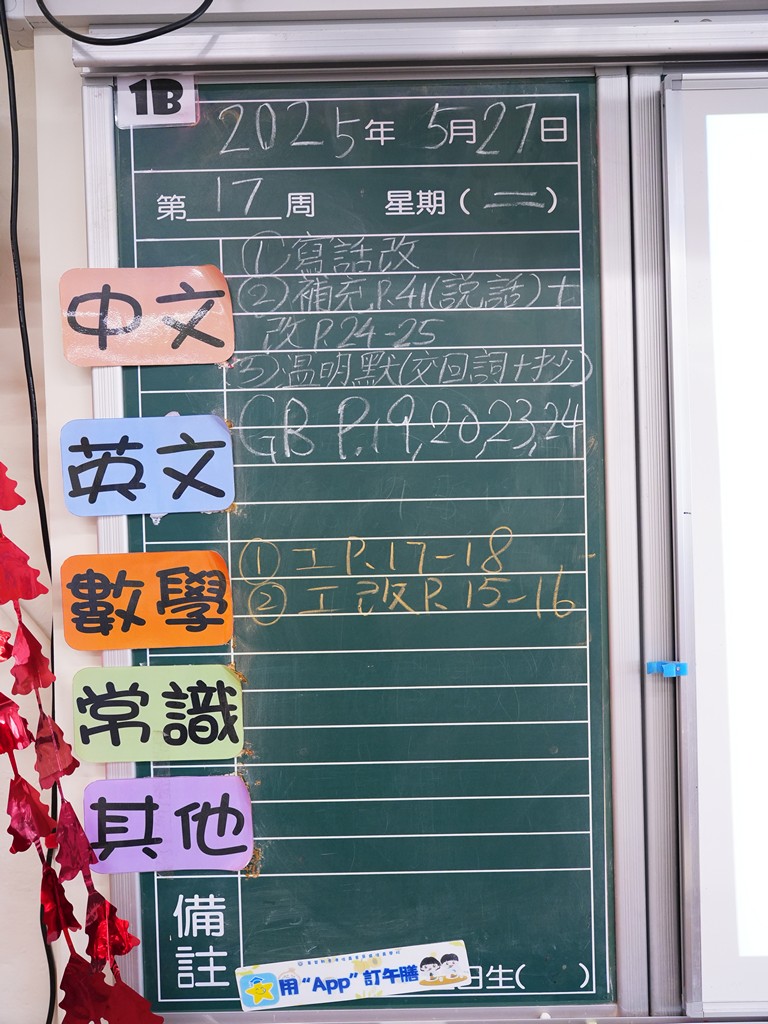 1B
2025年 5月27日
第 17 周 星期(二)
中文
①寫話改
②補充P.41(説話)+
改P.24-25
③温明默(交回詞+抄)
英文
GB P.19,20,23,24
數學
① 工 P.17-18
② 工 改 P.15-16
常識
其他
備註
用“App”訂午膳
日生( )